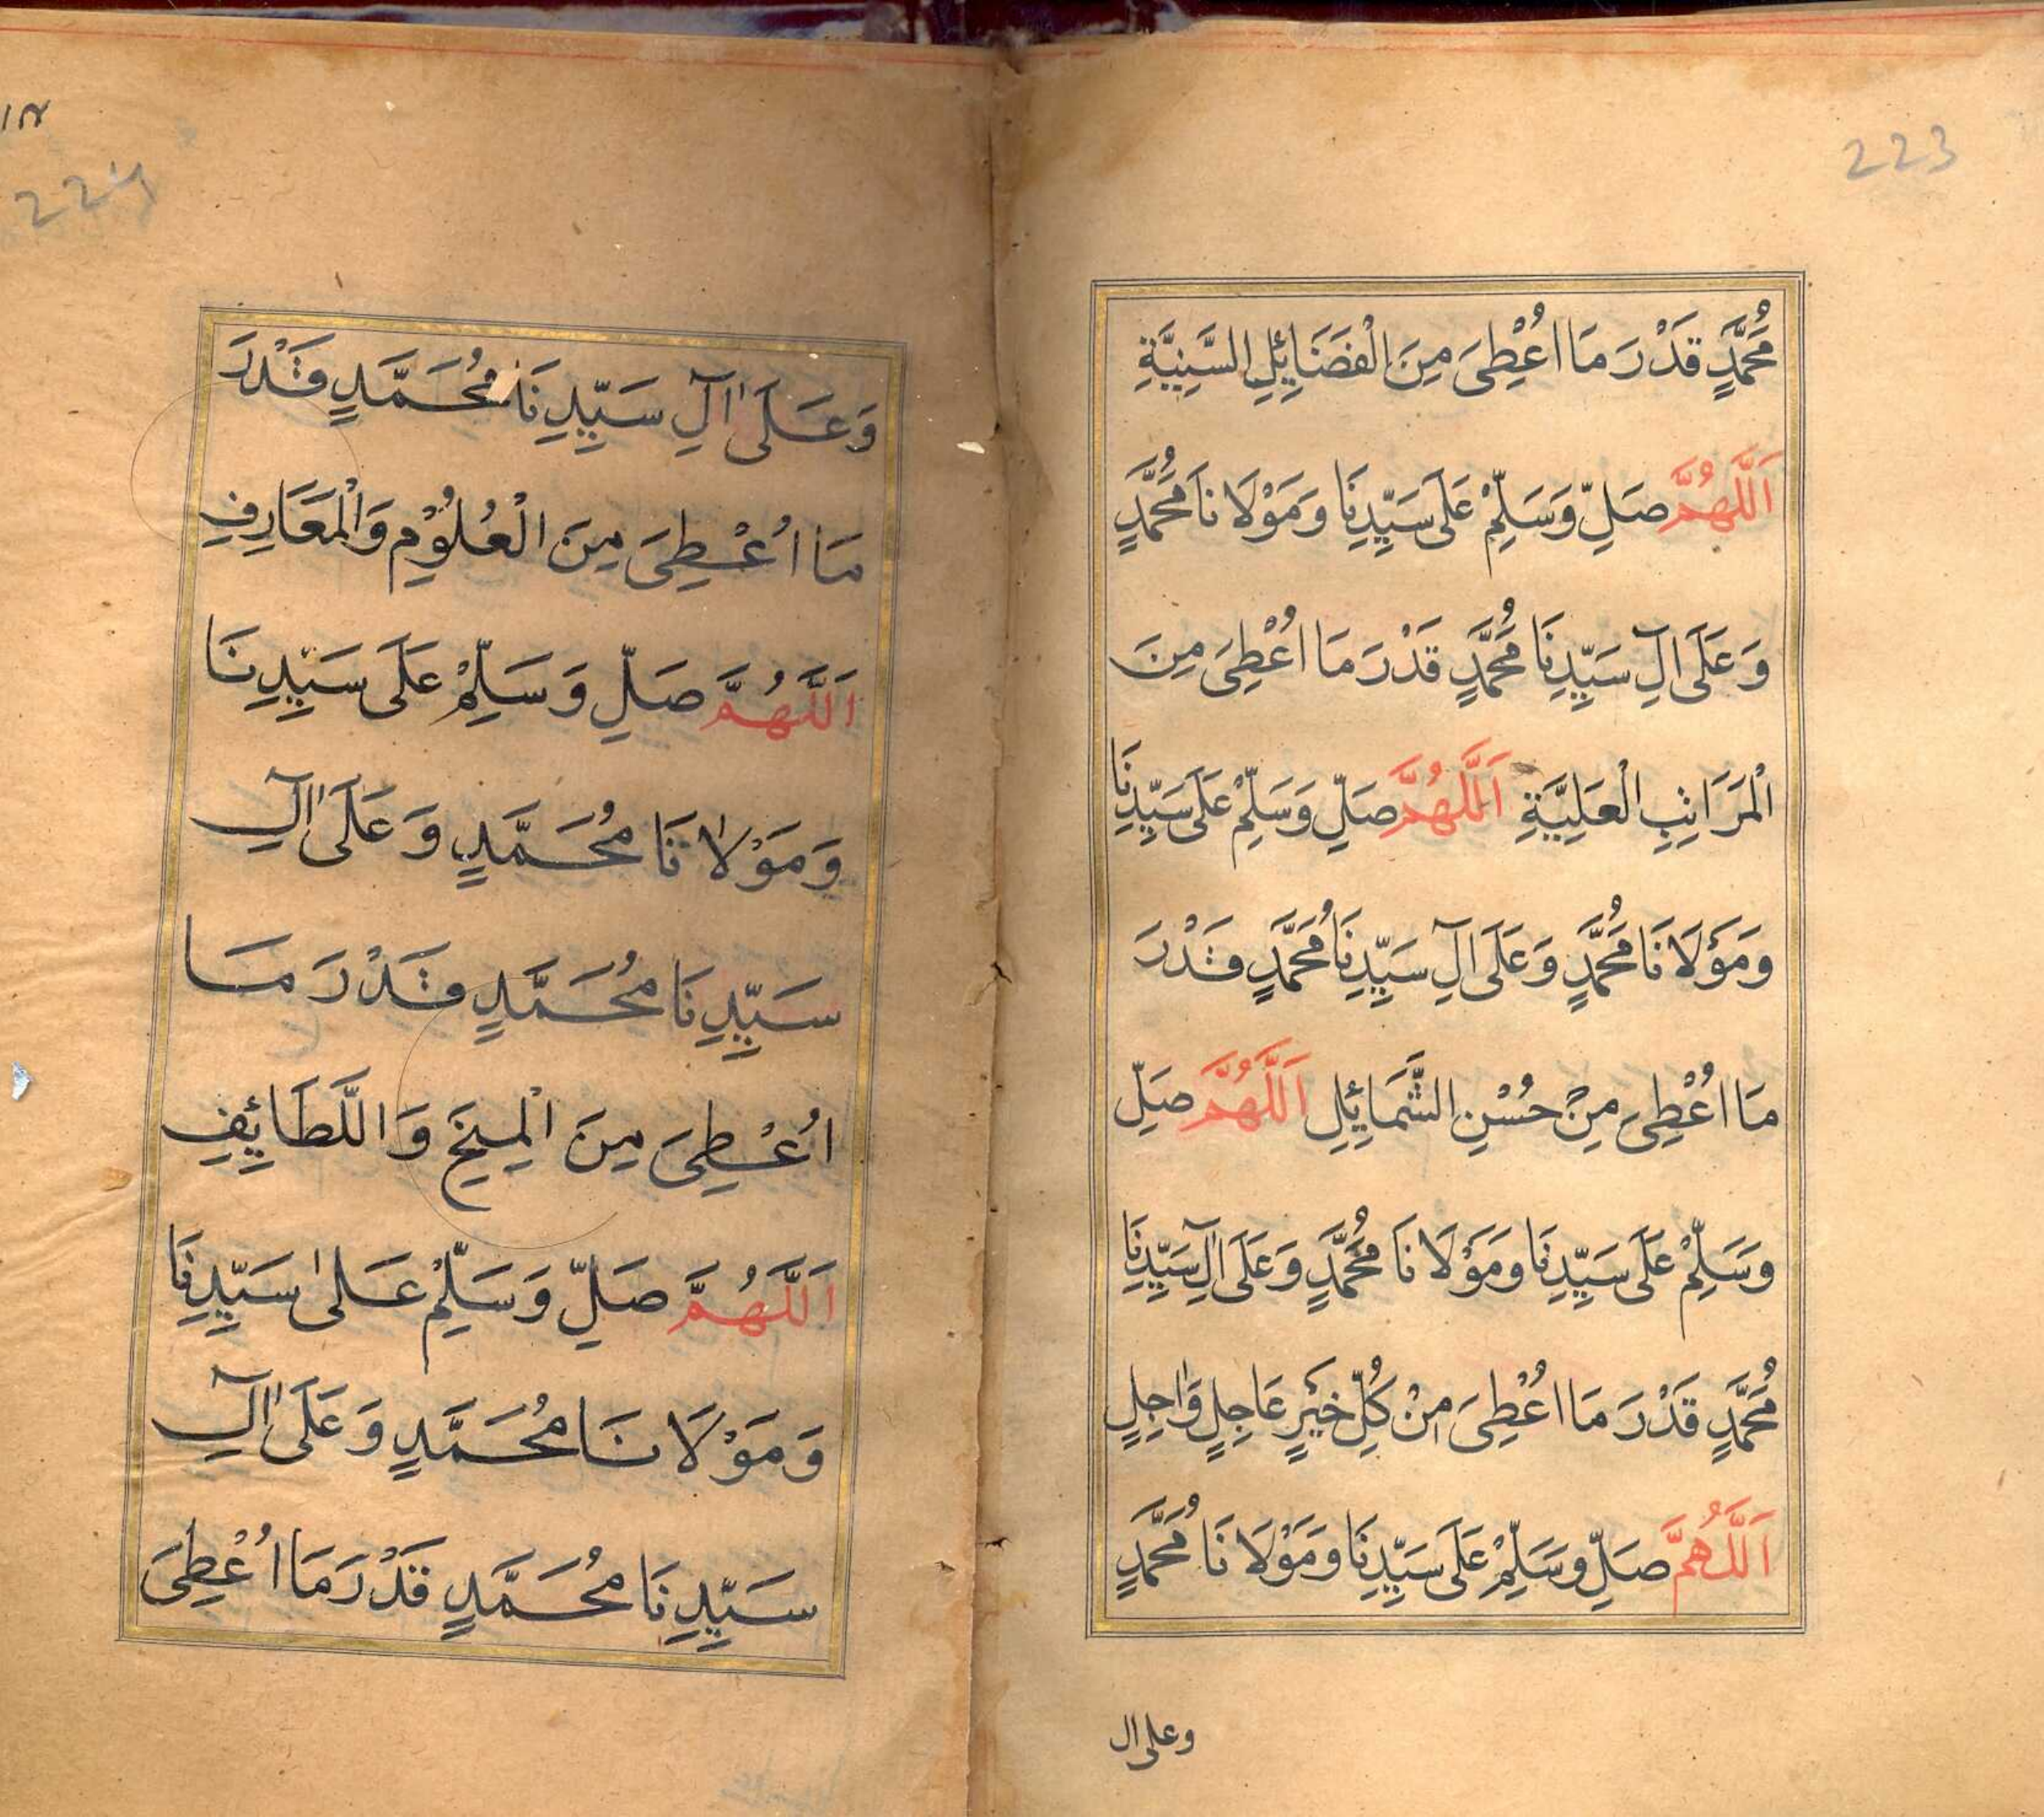 223
مُحَمَّدٍ قَدْرَ مَا اُعْطِیَ مِنَ الْفَضَائِلِ السَّنِيَّةِ
اَللَّهُمَّ صَلِّ وَسَلِّمْ عَلَى سَيِّدِنَا وَمَوْلَانَا مُحَمَّدٍ
وَعَلَى اٰلِ سَيِّدِنَا مُحَمَّدٍ قَدْرَ مَا اُعْطِیَ مِنَ
الْمَرَاتِبِ الْعَلِيَّةِ اَللَّهُمَّ صَلِّ وَسَلِّمْ عَلَى سَيِّدِنَا
وَمَوْلَانَا مُحَمَّدٍ وَعَلَى آلِ سَيِّدِنَا مُحَمَّدٍ قَدْرَ
مَا اُعْطِیَ مِنْ حُسْنِ الشَّمَائِلِ اَللَّهُمَّ صَلِّ
وَسَلِّمْ عَلَى سَيِّدِنَا وَمَوْلَانَا مُحَمَّدٍ وَعَلَى آلِ سَيِّدِنَا
مُحَمَّدٍ قَدْرَ مَا اُعْطِیَ مِنْ كُلِّ خَيْرٍ عَاجِلٍ وَاجِلٍ
اَللَّهُمَّ صَلِّ وَسَلِّمْ عَلَى سَيِّدِنَا وَمَوْلَانَا مُحَمَّدٍ
وعلى ال
224
وَعَلَى آلِ سَيِّدِنَا مُحَمَّدٍ قَدْرَ
مَا اُعْطِیَ مِنَ الْعُلُوْمِ وَالْمَعَارِفِ
اَللَّهُمَّ صَلِّ وَسَلِّمْ عَلَى سَيِّدِنَا
وَمَوْلَانَا مُحَمَّدٍ وَعَلَى آلِ
سَيِّدِنَا مُحَمَّدٍ قَدْرَ مَا
اُعْطِیَ مِنَ الْمِنَحِ وَاللَّطَائِفِ
اَللَّهُمَّ صَلِّ وَسَلِّمْ عَلىٰ سَيِّدِنَا
وَمَوْلَانَا مُحَمَّدٍ وَعَلَى آلِ
سَيِّدِنَا مُحَمَّدٍ قَدْرَ مَا اُعْطِیَ